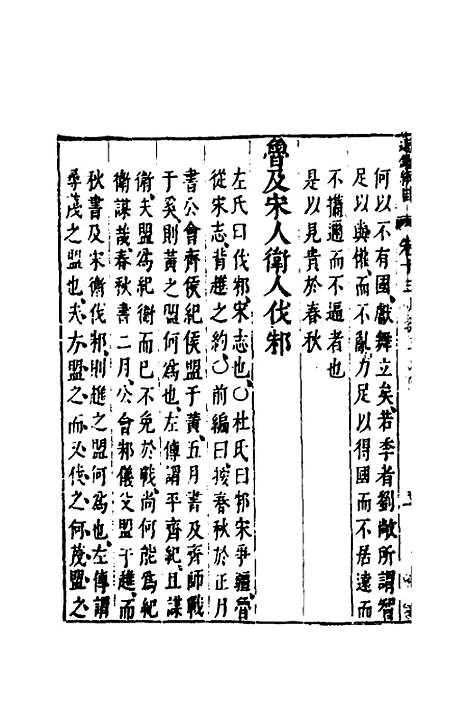 何以不有國獻舞立矣若季者劉敞所謂智
足以與權而不亂力足以得國而不居遠而
不攜邇而不逼者也
是以見貴於春秋
魯及宋人衛人伐邾
左氏曰伐邾宋志也○杜氏曰邾宋爭疆魯
從宋志背趡之約○前編曰按春秋於正月
書公會齊侯紀侯盟于黃五月書及齊師戰
于奚則黃之盟何為也左傳謂平齊紀且謀
衛夫盟為紀衛而已不免於戰尚何能為紀
衛謀哉春秋書二月公會邾儀父盟于趡而
秋書及宋衛伐邾則趡之盟何為也左傳謂
尋蔑之盟也夫方盟之而又伐之何蔑盟之